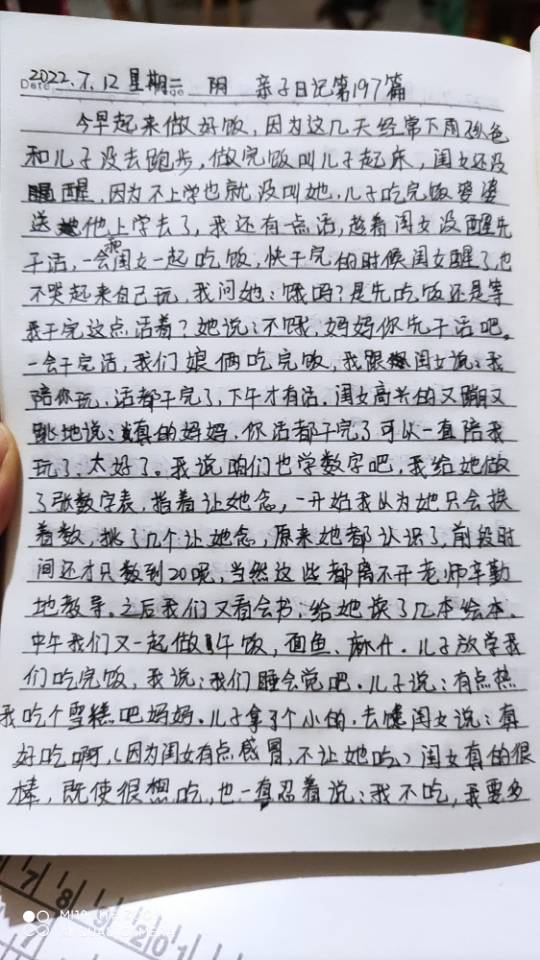 2022.7.12 星期二 阴 亲子日记第197篇
今早起来做好饭，因为这几天经常下雨
和儿子没去跑步，做完饭叫儿子起床，闺女还没
醒，因为不上学也就没叫她，儿子吃完饭婆婆
送他上学去了，我还有一点活，趁着闺女没醒先
干活，一会和闺女一起吃饭，快干完的时候闺女醒了，也
不哭起来自己玩，我问她：饿吗？是先吃饭还是等
我干完这点活着？她说：不饿，妈妈你先干活吧。
一会干完活，我们娘俩吃完饭，我跟闺女说：我
陪你玩，活都干完了，下午才有活，闺女高兴的又蹦又
跳地说：真的妈妈，你活都干完了可以一直陪我
玩了，太好了。我说咱们也学数字吧，我给她做
了张数字表，指着让她念，一开始我以为她只会挨
着数，挑了几个让她念，原来她都认识了，前段时
间还才只数到20呢，当然这些都离不开老师辛勤
地教导。之后我们又看会书，给她读了几本绘本。
中午我们又一起做午饭，面鱼、麻什。儿子放学我
们吃完饭，我说：我们睡会觉吧。儿子说：有点热
我吃个雪糕吧妈妈。儿子拿了个小的，去馋闺女说：真
好吃啊，（因为闺女有点感冒，不让她吃）闺女真的很
棒，既使很想吃，也一直忍着说：我不吃，我要